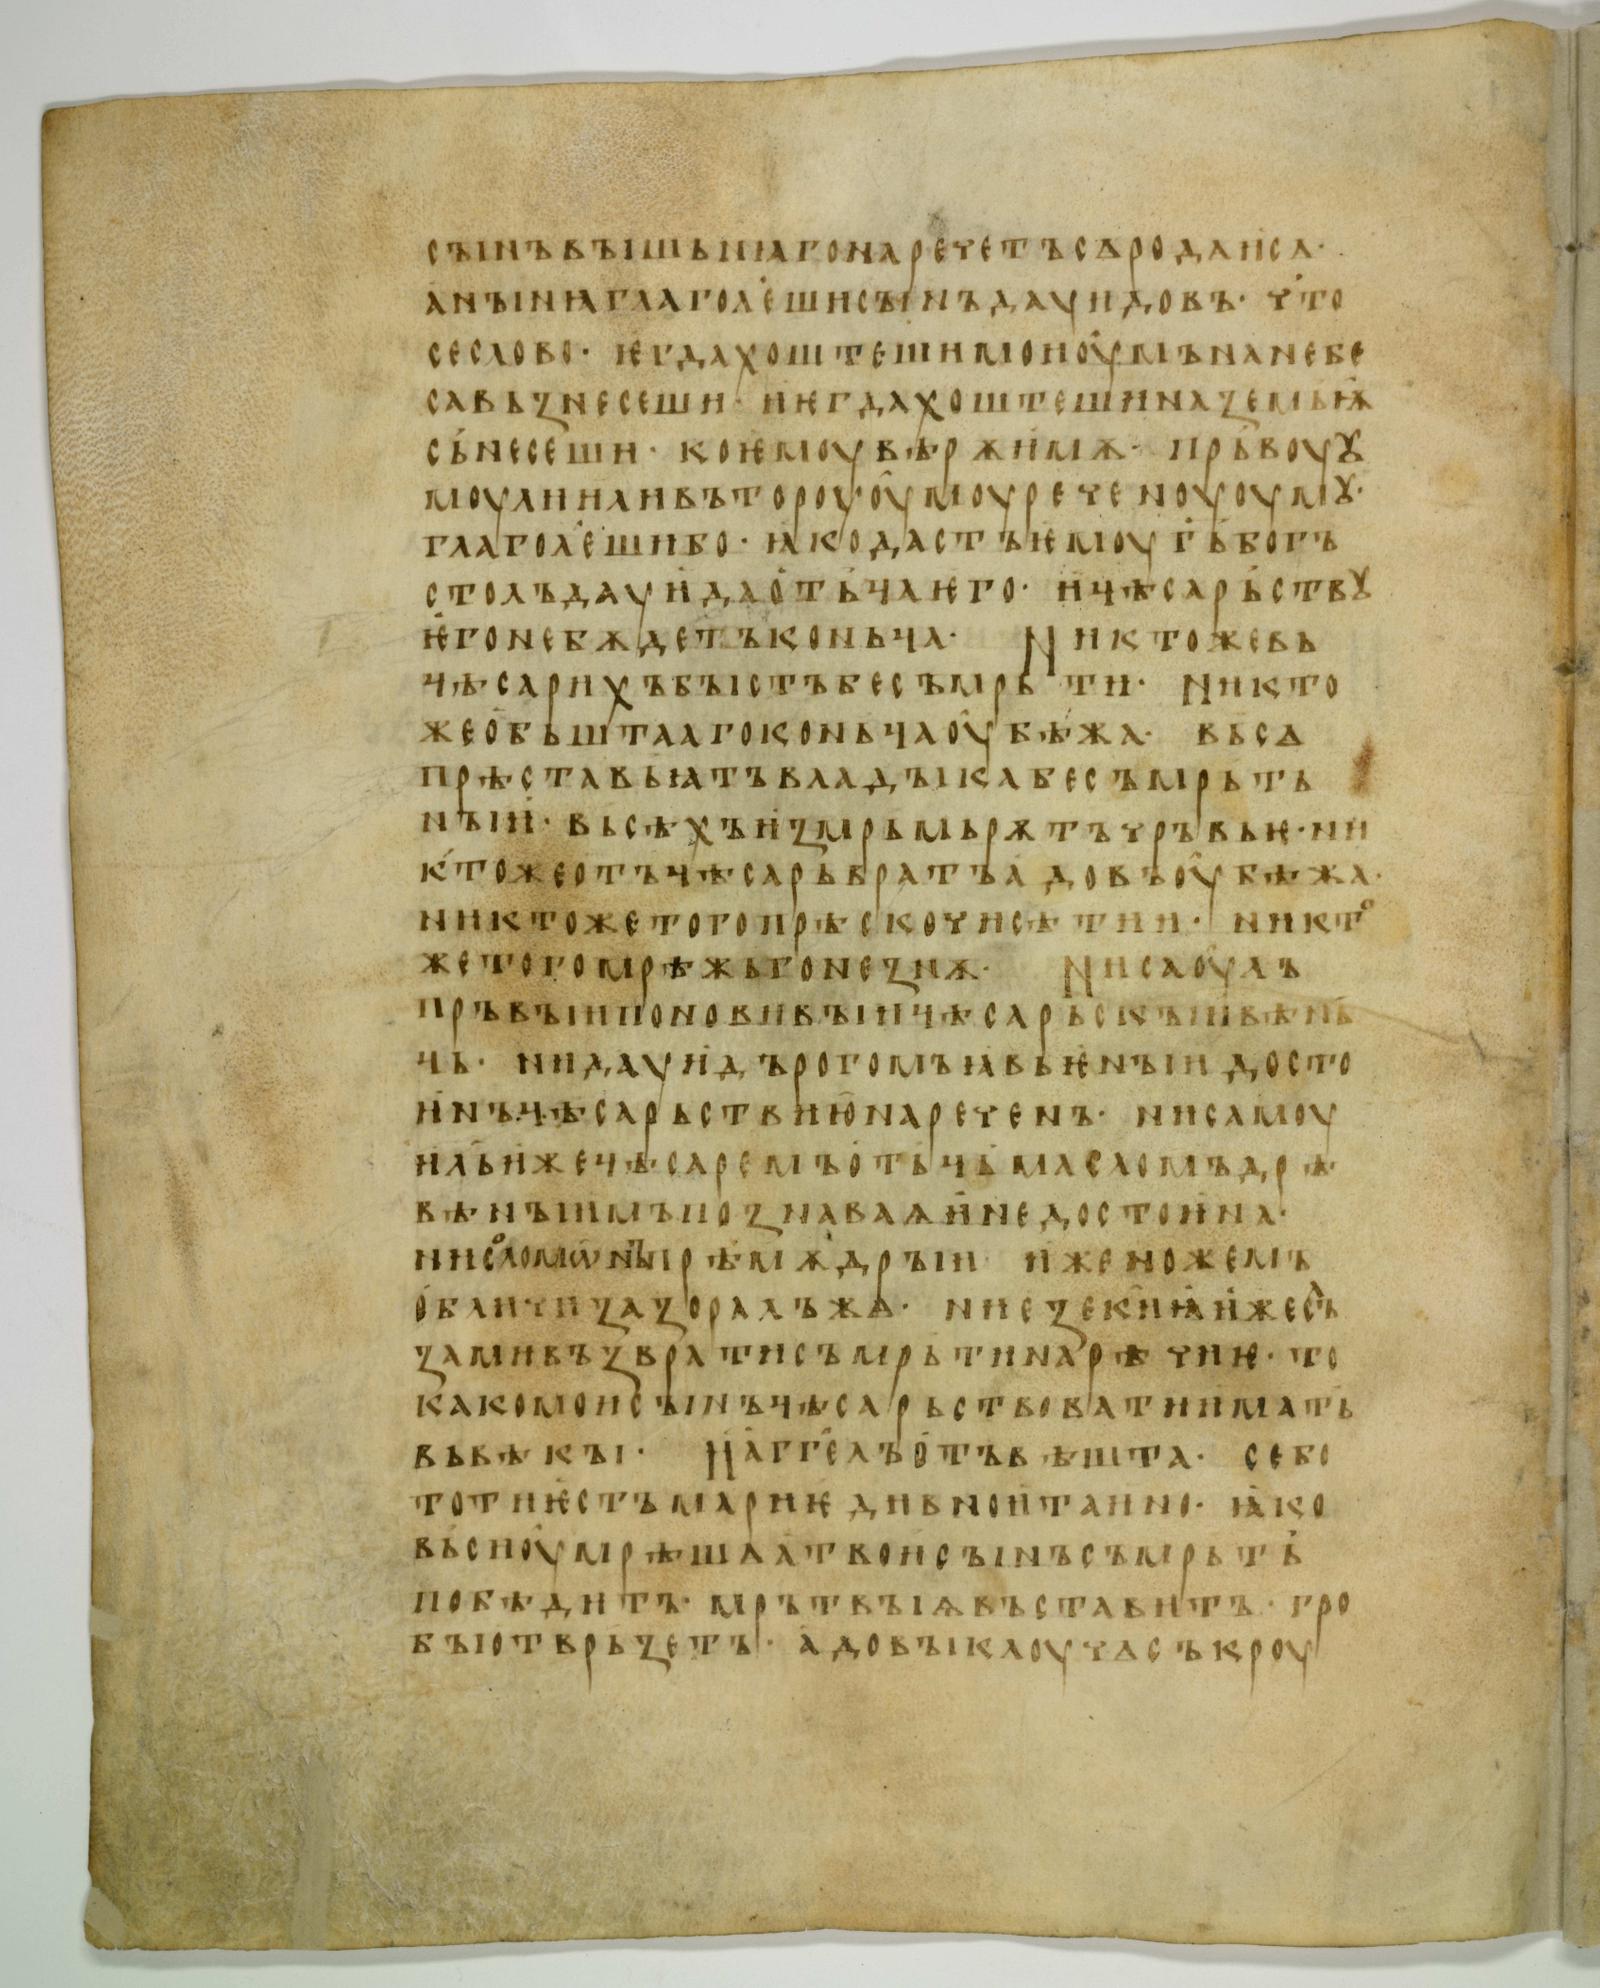 сꙑнъвꙑшьнꙗгонаречетъсѧродаиса·
анꙑнꙗглагол҄ешисꙑнъдаѵидовъ· что
сеслово· ѥгдахоштешимоиоумънанебе
савьꙁнесеши· иѥгдахоштешинаꙁемьѭ
сънесеши· коѥмоувѣрѫимѫ· прьвоуꙋ
моуѧиливътороуоумоуреченоуоумꙋ·
глагол҄ешибо· ꙗкодастъѥмоугьбогъ
столъдаѵидаотьцаѥго· ицѣсарьствꙋ
ѥгонебѫдетъконьца· Никтожевь
цѣсарихъбꙑстъбесъмрьти· Никто
жеобьштаагоконьцаоубѣжа· вьсѧ
прѣставьꙗтъвладꙑкабесъмрьть
нꙑи· вьсѣхъиꙁмрьмьрѫтъчръвьѥ· ни
ктожеотъцѣсарьвратъадовъоубѣжа·
никтожетогопрѣскочисѣтии· никто
жетогомрѣжьгонеꙁнѫ· Нисаоулъ
пръвꙑипоновивꙑицѣсарьскꙑивѣнь
ць· нидаѵидърогомъꙗвьѥнꙑидосто
инъцѣсарьствиюнареченъ· нисамоу
ильижецѣсаремъотьцьмасломъдрѣ
вѣнꙑимъпоꙁнаваѩинедостоина·
нисоломѡнъпрѣмѫдрꙑи иженожемъ
обличиꙁаꙁоралъжѧ· ниеꙁекиꙗижесъ
ꙁамивъꙁвратисъмрьтинарѣчиѥ· то
какомоисꙑнъцѣсарьствоватииматъ
вьвѣкꙑ· Нагг҄елъотъвѣшта· себо
тотиѥстъмариѥдивноитаино· ꙗко
вьсноумрѣшаѧтвоисꙑнъсъмрьть
побѣдитъ· мрътвꙑѩвъставитъ· гро
бꙑотврьꙁетъ· адовꙑключѧсъкроу